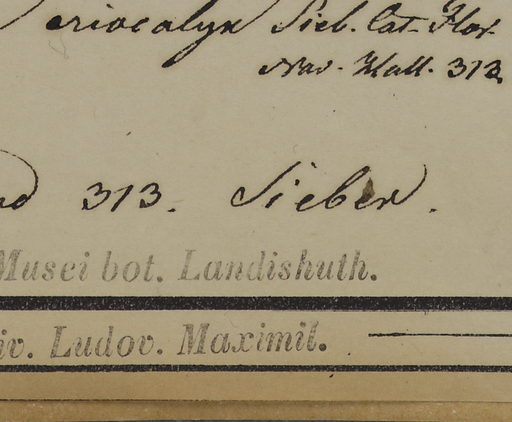 eriocalyx Sieb. Cat. Flor.
Nov. Holl. 313.
nd 313. Sieber.
Musei bot. Landishuth.
iv. Ludov. Maximil.